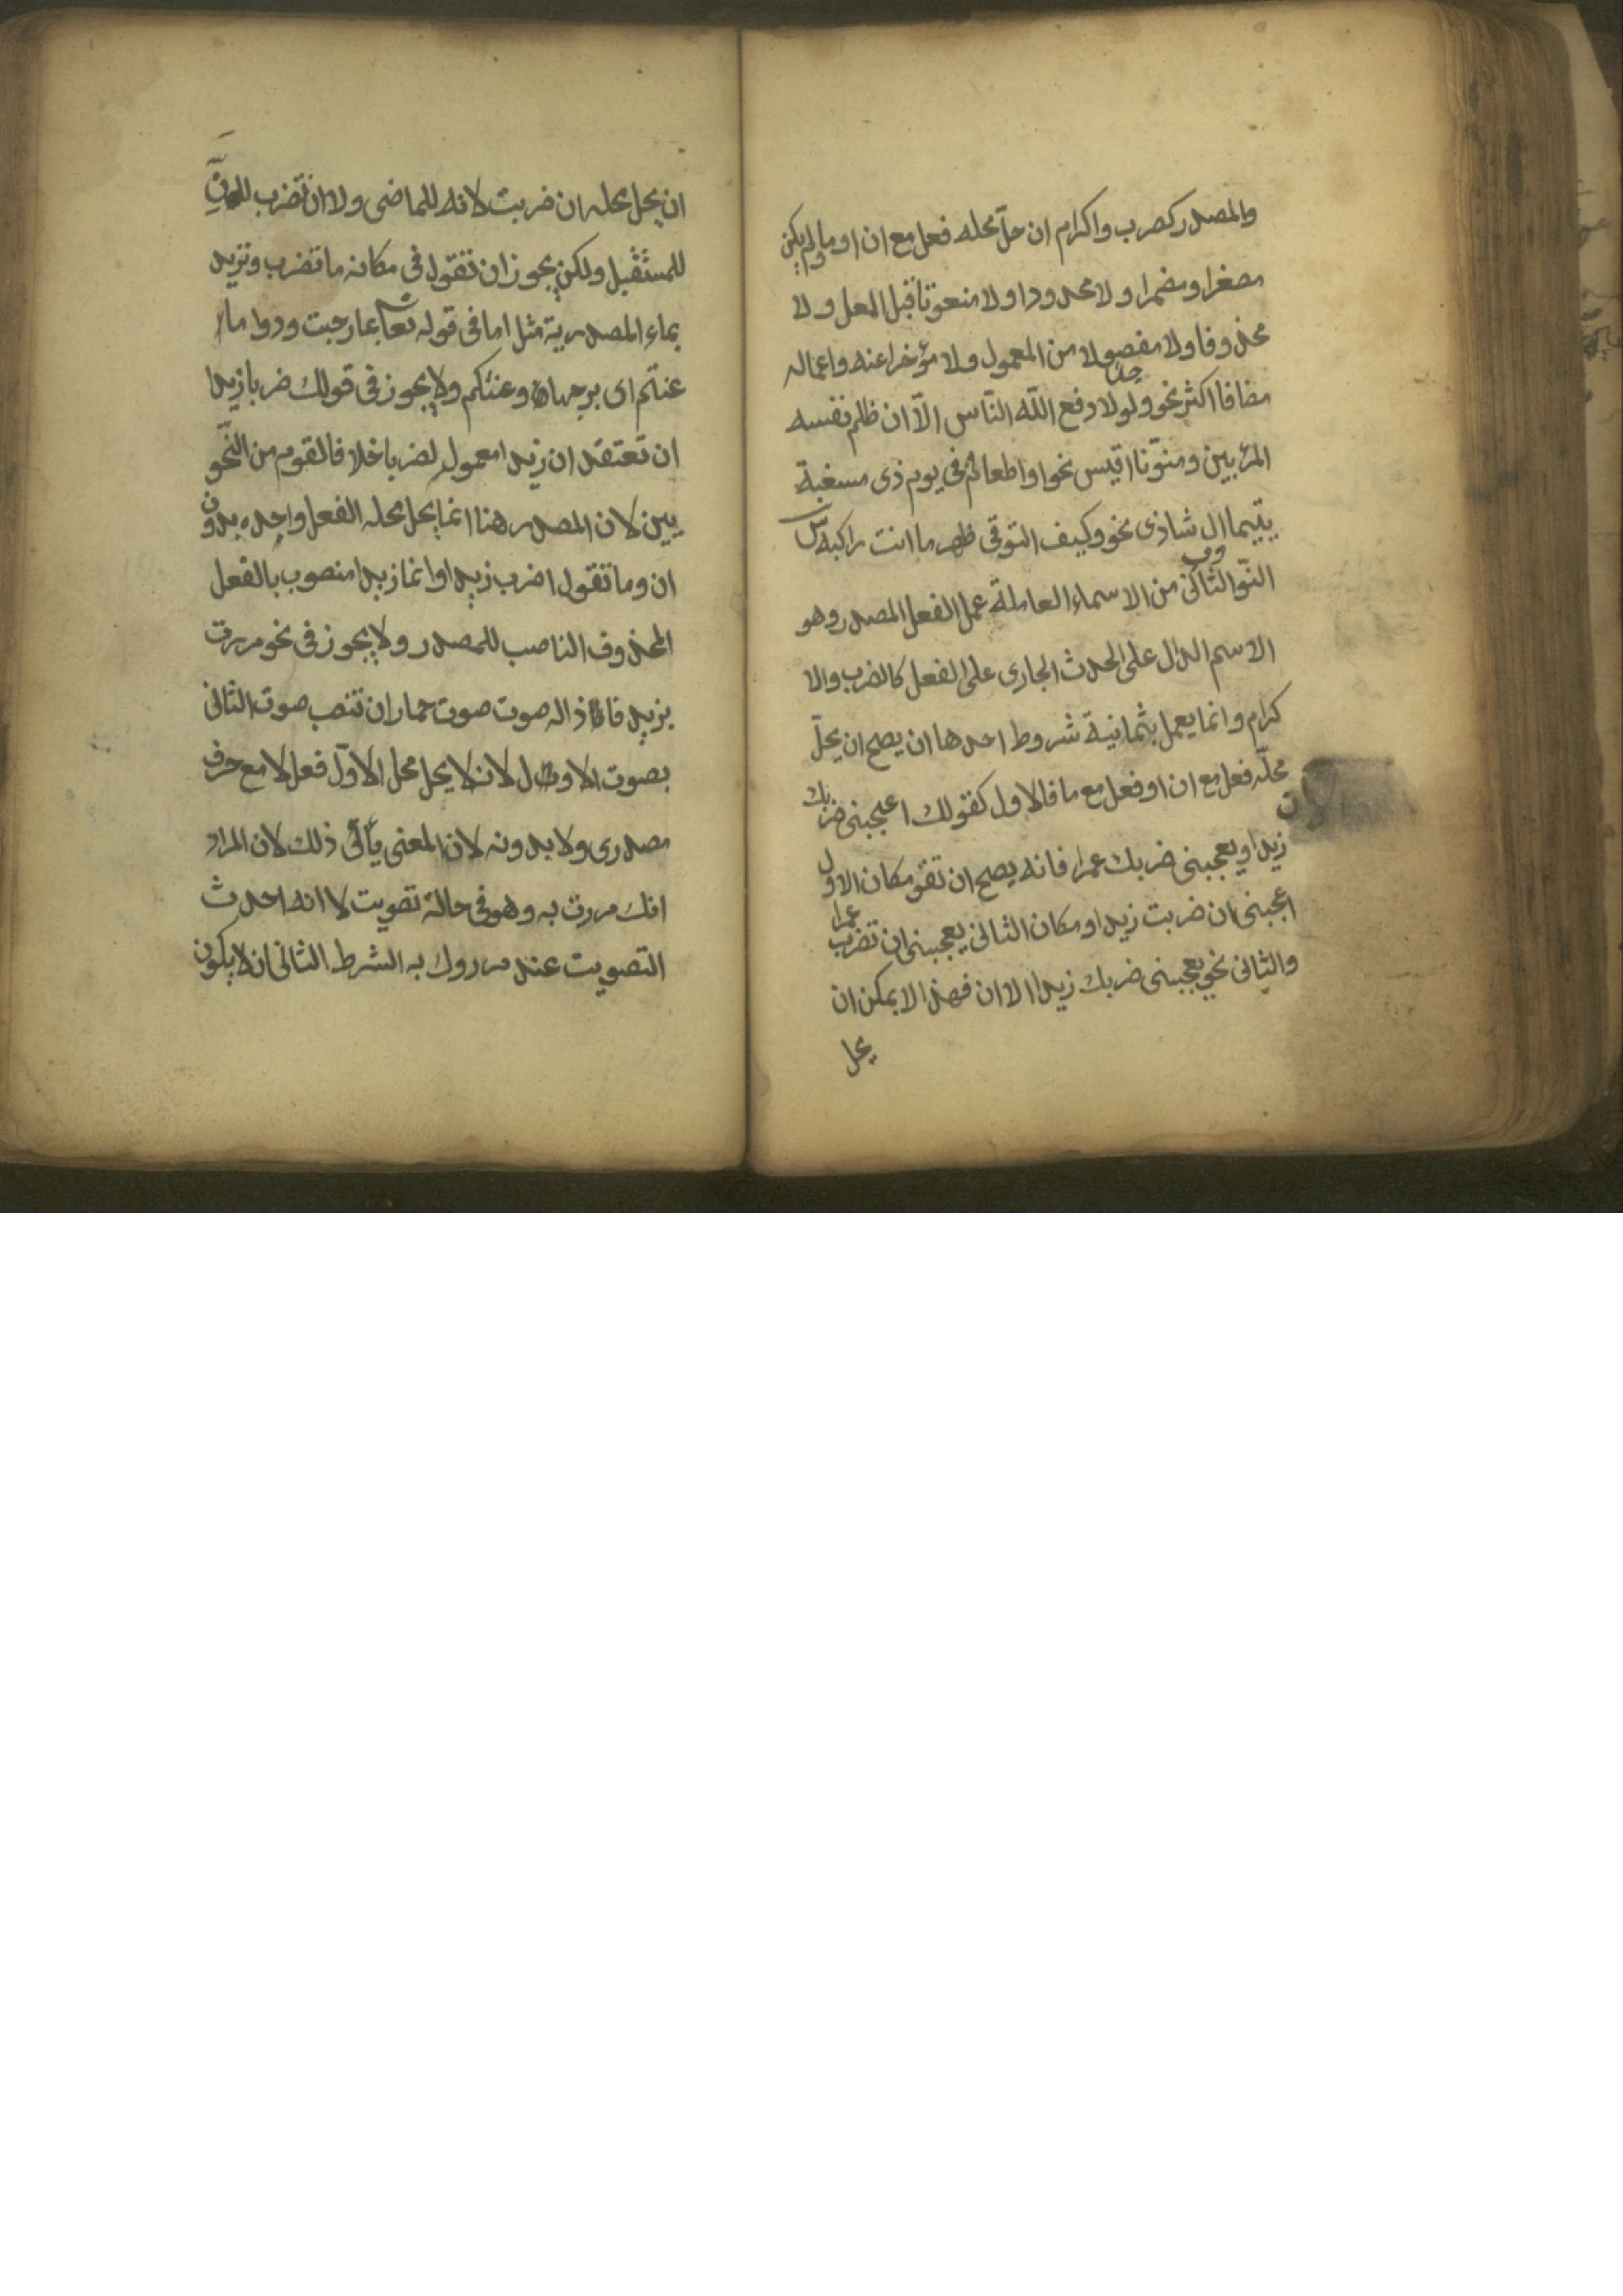 والمصدر كضرب واكرام ان حلّ محله فعل مع ان او ما ولم يكن
مصغرا ومضمرا ولا محدودا ولا منعوتا قبل العمل ولا
محذوفا ولا مفصولا من المعمول ولا مؤخرا عنه واعماله
مضافا اكثر نحو ولولا دفع اللّه النّاس الّا ان ظلم نفسه
المرء بين ومنوّنا اقيس نحو او اطعام فى يوم ذى مسغبة
يتيما وبال شاذ نحو وكيف التوقى ظهر ما انت راكبه ش
النّو الثانى من الاسماء العاملة عمل الفعل المصدر وهو
الاسم الدال على الحدث الجارى على الفعل كالضرب والا
كرام وانما يعمل بثمانية شروط احدها ان يصح ان يحلّ
محلّه فعل مع ان او فعل مع ما فالاول كقولك اعجبنى ضربك
زيدا ويعجبنى ضربك عمرا فانه يصح ان تقو مكان الاول
اعجبنى ان ضربت زيدا ومكان الثانى يعجبنى ان تضرب عمرا
والثانى نحو يعجبنى ضربك زيدا الان فهذا لا يمكن ان
يحل
ان يحل محله ان ضربت لانه للماضى ولا ان تضرب لانّ
للمستقبل ولكن يجوز ان تقول فى مكانه ما تضرب وتريد
بماء المصدرية مثل ما فى قوله تعا بما رحبت ودوا ما
عنتّم اى برحبها وعنتكم ولا يجوز فى قولك ضربا زيدا
ان تعتقد ان زيدا معمول لضربا خلافا لقوم من النّحو
يين لان المصدر هنا انما يحل محله الفعل وحده بدون
ان وما تقول اضرب زيدا وانما زيدا منصوب بالفعل
المحذوف الناصب للمصدر ولا يجوز فى نحو مررت
بزيد فاذا له صوت صوت حمار ان تنصب صوت الثانى
بصوت الاول لانه لا يحل محل الاوّل فعل لا مع حرف
مصدرى ولا بدونه لان المعنى يأبى ذلك لان المراد
انك مررت به وهو فى حالة تصويت لا انه احدث
التصويت عند مرروك به الشرط الثانى ان لا يكون